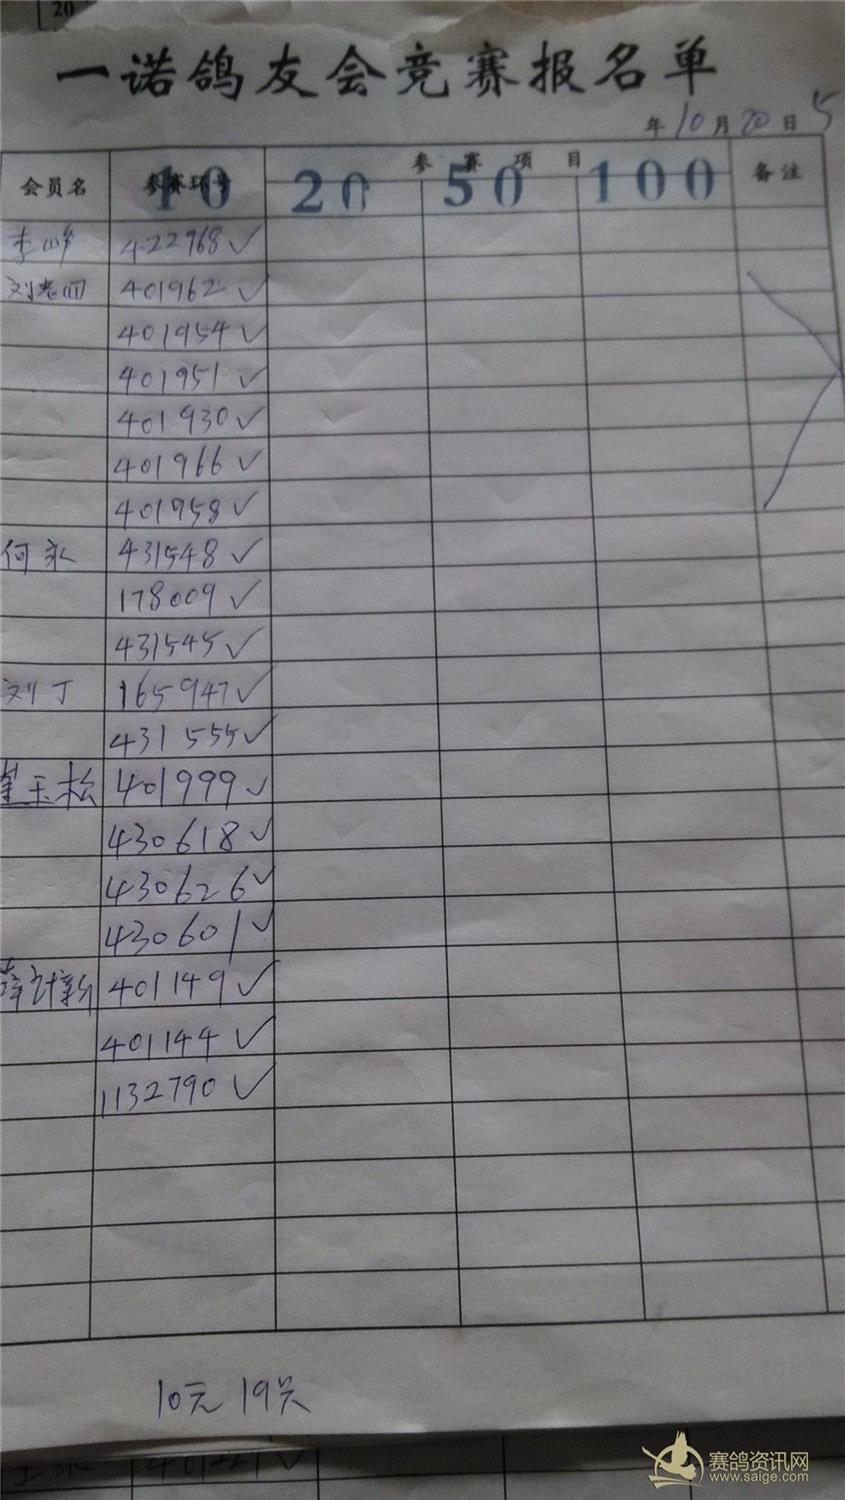 20
一诺鸽友会竞赛报名单
年10月20日 5
会员名 参赛环号 参赛项目 备注
10 20 50 100
李峰 422968✓
刘老四 401962✓
401954✓
401951✓
401930✓
401966✓
401958✓
何永 431548✓
178009✓
431545✓
刘丁 165947✓
431555✓
崔玉松 401999✓
430618✓
430626✓
430601✓
薛计新 401149✓
401144✓
1132790✓
10元 19只
赛鸽资讯网
www.saige.com